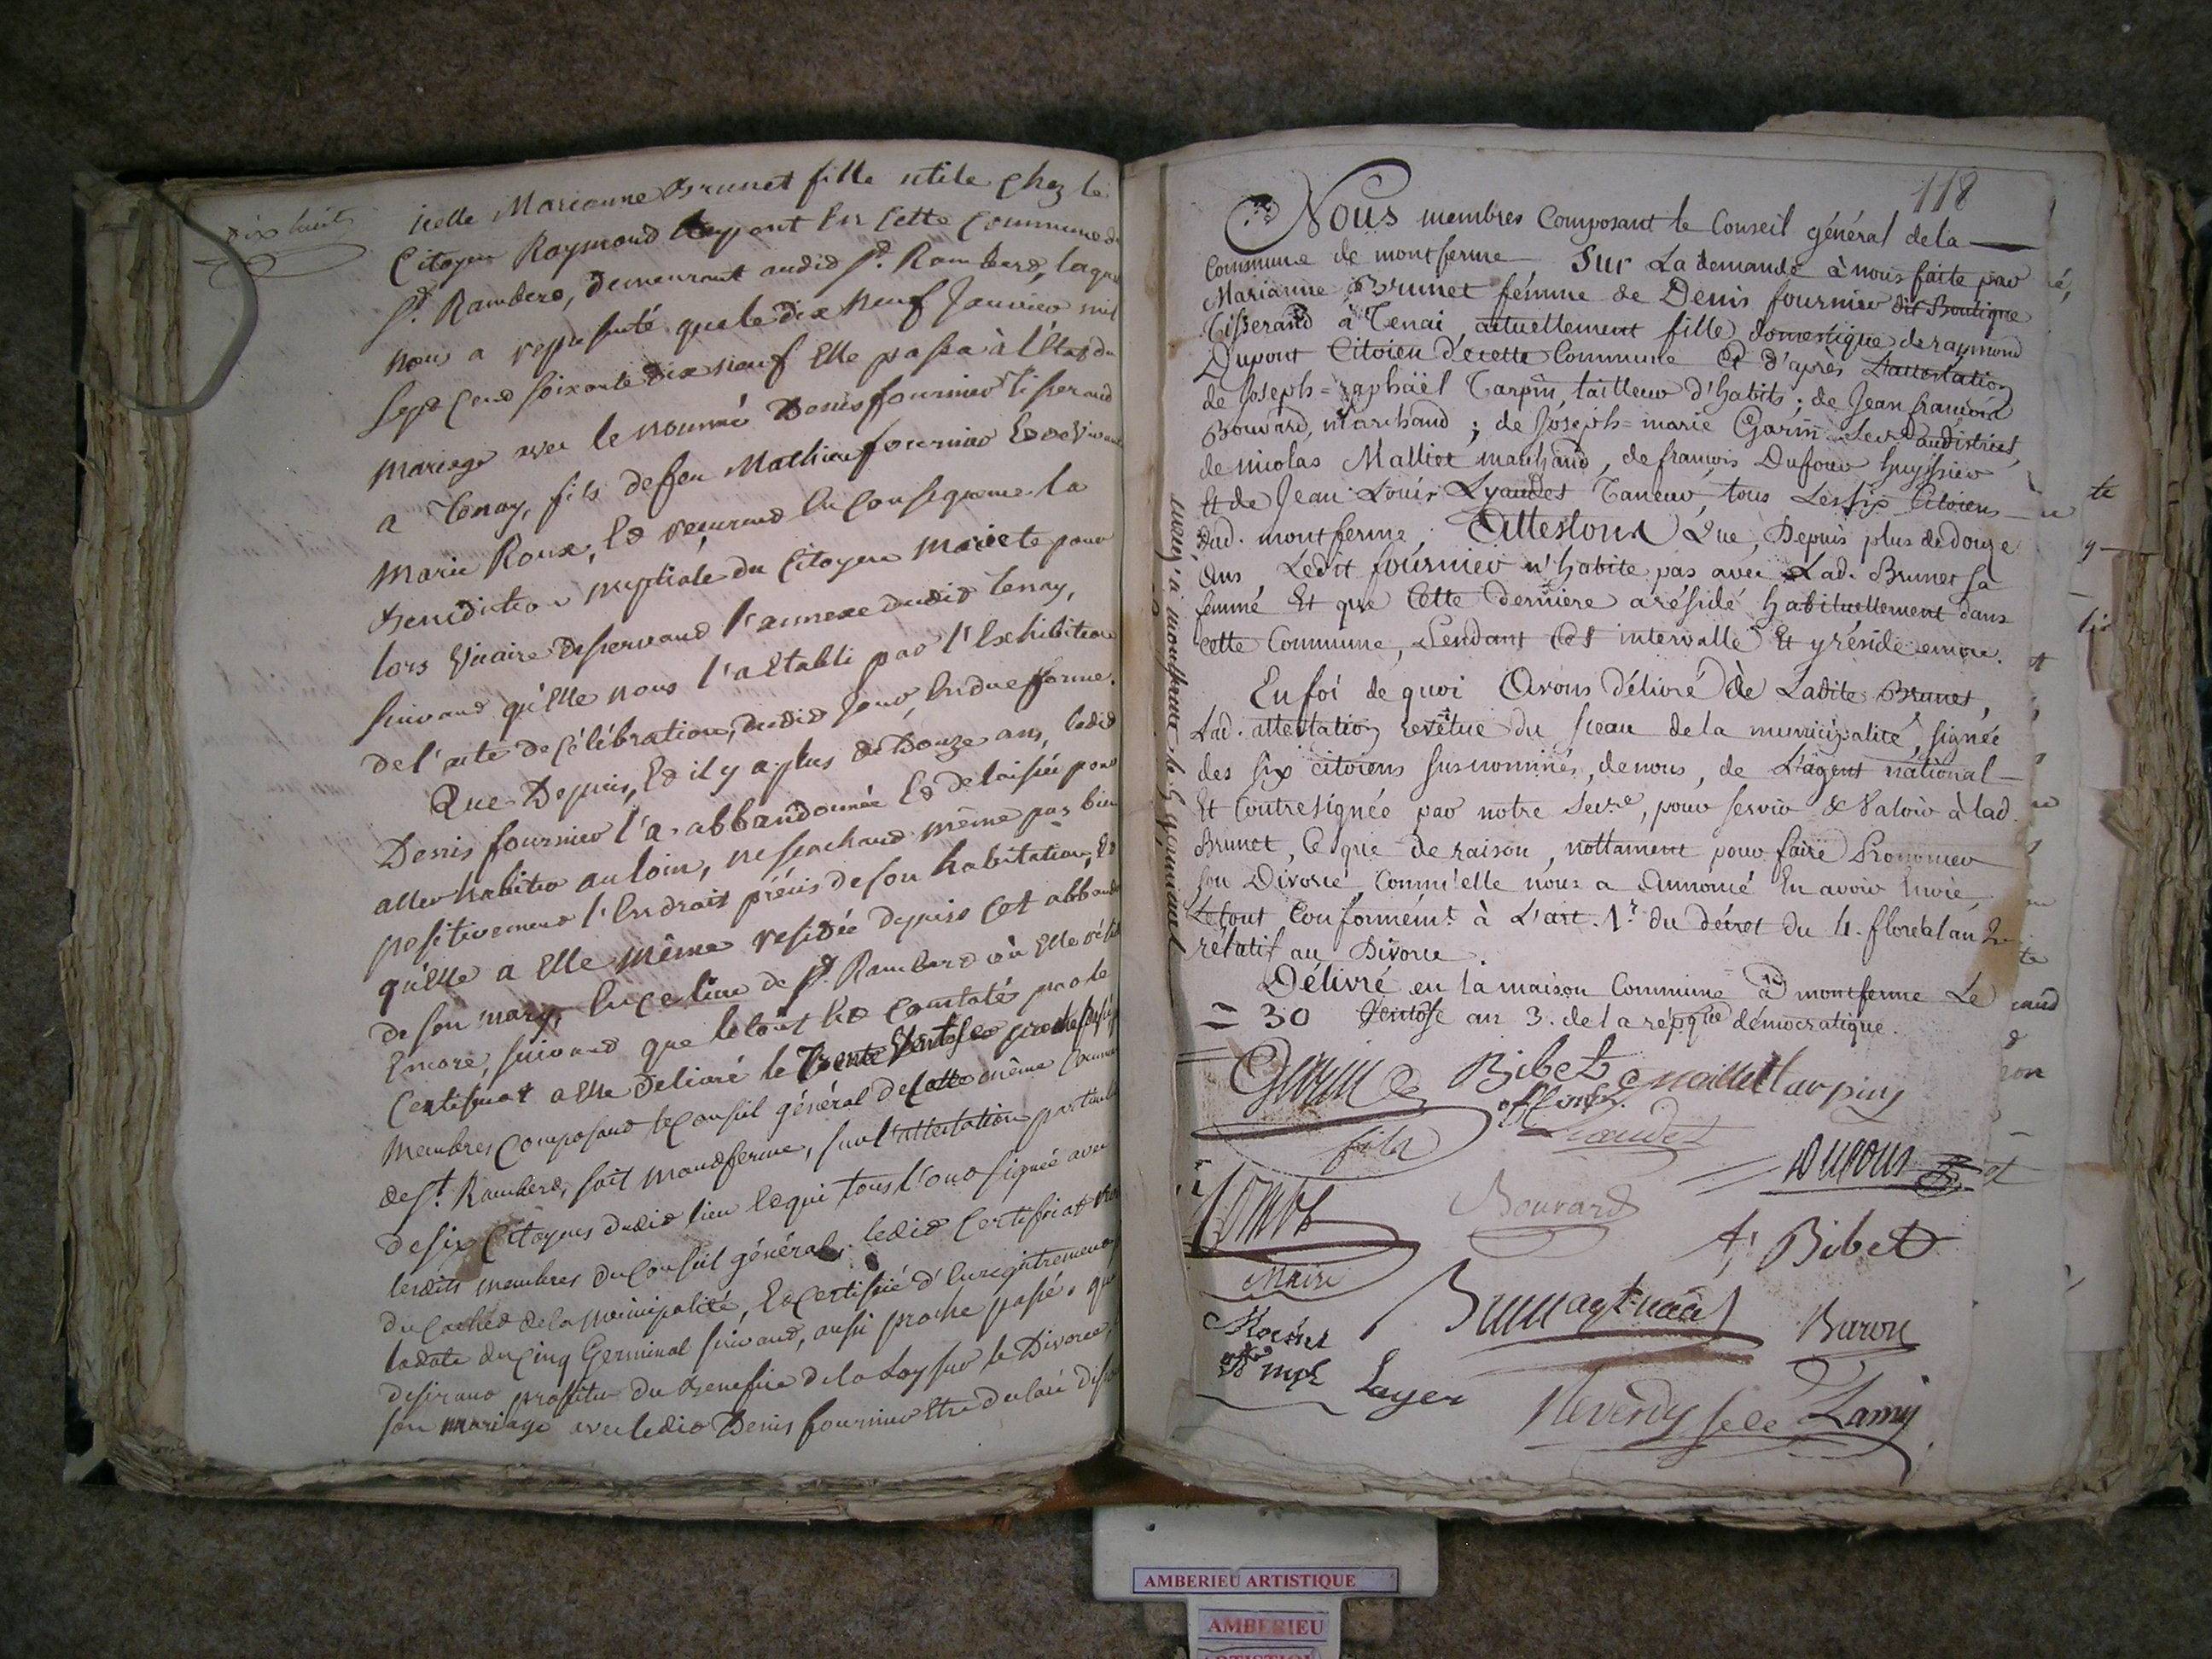 dix huit
icelle Marianne Brunet fille utile chez le
Citoyen Raymond Dupont en cette commune de
St. Rambert, demeurant audid St. Rambert, laquelle
nous a representé que le dix neuf Janvier mil
sept cend soixante dix neuf Elle passa à l'Etat du
mariage avec le nommé Denis fournier tisserand
a Tenay, fils de feu Mathieu fournier Ed de vivante
Marie Roux, Ed reçurend En Consequence la
Benediction nuptiale du Citoyen
lors vicaire desservand l'annexe dudid Tenay,
suivand qu'Elle nous l'a Etabli par l'Exhibition
de l'acte de Célébration, dudid jour, En due forme.
Que Depuis, Ed il y a plus de Douze ans, ledid
Denis fournier l'a abbandonnée Ed delaissée pour
aller habiter au loin, ne sachand même pas bien
positivemend l'Endroit précis de son habitation, Ed
qu'Elle a Elle même residée depuis cet abbandon
de son mary, En ce lieu de St. Rambert où Elle réside
Encore, suivand que le tout Est constaté par le
Certificat a Elle Delivré le Trente Ventose par les
Membres Composand le Conseil général de cette même Commune
de St. Rambert, soit Montferme, sur l'attestation particuliere
de six Citoyens dudid lieu Ed qui tous l'ond signée avec
lesdits membres du Conseil général, ledid Certificat
du Cachet de la Municipalité, Ed Certifié d'Enregistremend
la date du Cinq Germinal suivand, aussi proche passé, que
desirand profiter du Benefice de la Loy sur le Divorce,
son mariage avec ledid Denis fournier Etre declaré
118
Nous membres Composant le Conseil général de la
Commune de montferme Sur La demande à nous faite par
Marianne Brunet fémme de Denis fournier dit Boutique
Tisserand à Tenai, actuellement fille domestique de raymond
Dupont Citoien d'ecette Commune Et d'après L'attestation
de Joseph=raphaël Tarpin, tailleur d'habits; de Jean françois
Bouvard, Marchand; de Joseph=marie Garin Secre. du district,
de nicolas Malliet marchand, de françois Dufour huyssier
Et de Jean Louis Lyaudet Taneur, tous Les six Citoiens
dud. montferme, Attestons Que, Depuis plus de douze
Ans Ledit fournier n'habite pas avec Lad. Brunet sa
femme Et que Cette dernière a résidé habituellement dans
cette Commune, Pendant Cet intervalle Et y réside encore.
En foi de quoi Avons Délivré de Ladite Brunet,
Lad. attestation revêtue du sceau de la municipalité, signée
des six citoiens susnommés, de nous, de L'agent national
Et Contresignée par notre Secre, pour servir & Valoir à lad.
Brunet, Ce que de raison, nottament pour faire Prononcer
son Divorce, Comm'elle nous a Annoncé En avoir Envie,
Le tout Conformémt. à L'art. 1er du décret du 4. floréal an 2e
rélatif au Divorce.
Délivré en la maison Commune à montferme Le
= 30 Ventose an 3. de la répque démocratique.
Garin Bibet Malliet tarpin
fils Liaudet
Dufour
Bouvard
Maire
f. Bibet
Brun agt. naal
Buron
Layer
Reverdy sece Lamy